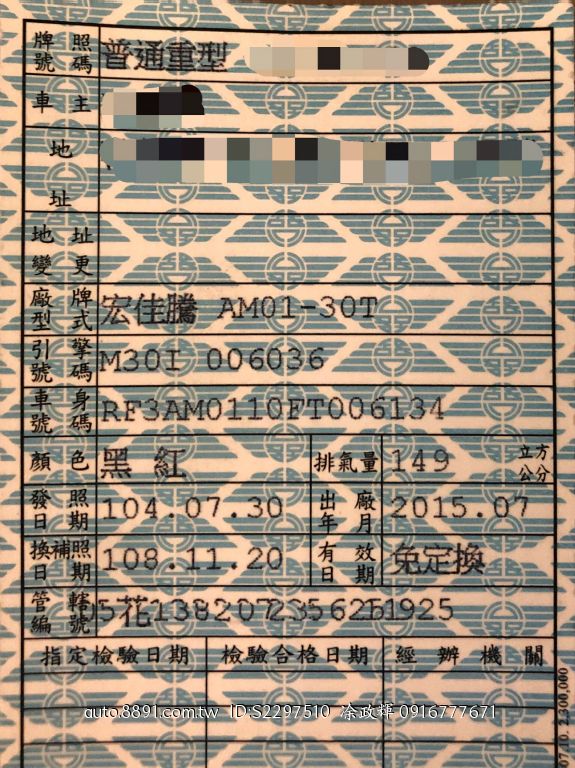 牌照號碼 普通重型
車主
地址
地址變更
廠牌型式 宏佳騰 AM01-30T
引擎號碼 M30I 006036
車身號碼 RF3AM0110FT006134
顏色 黑 紅 排氣量 149 立方公分
發照日期 104.07.30 出廠年月 2015.07
換補照日期 108.11.20 有效日期 免定換
管轄編號
指定檢驗日期 檢驗合格日期 經辦機關
auto.8891.com.tw ID:S2297510 涂政輝 0916777671